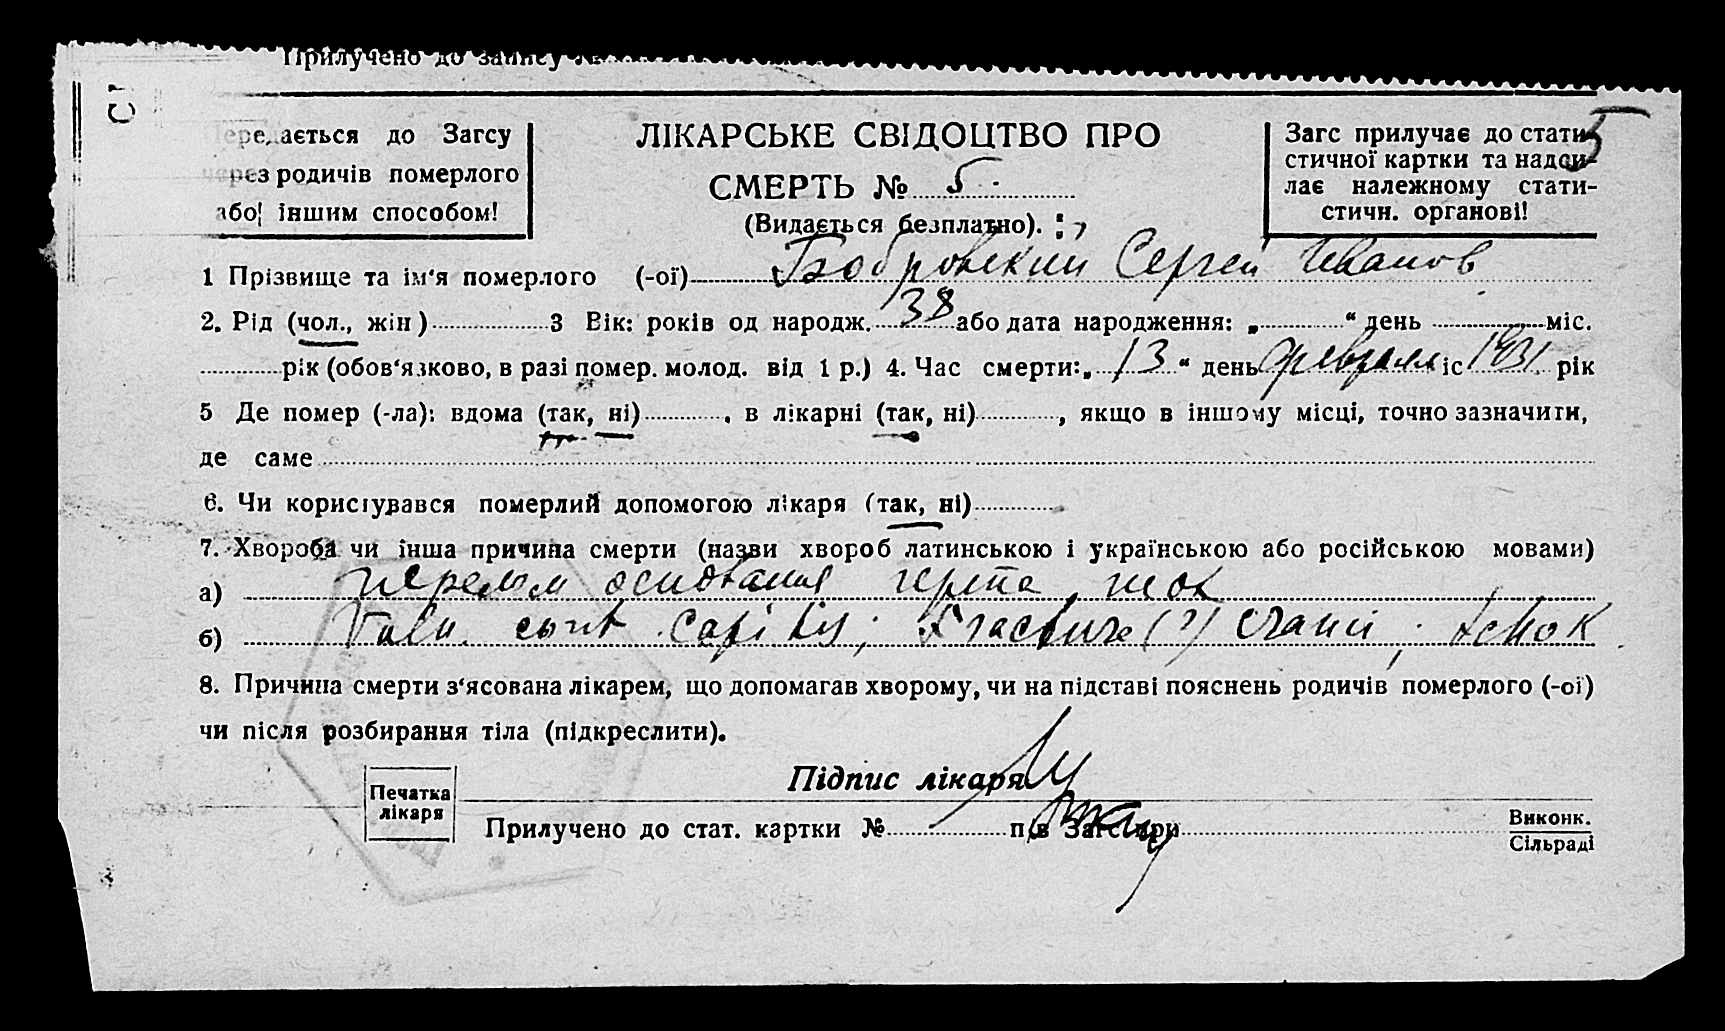 Прилучено до запису №
5
Передається до Загсу
через родичів померлого
або іншим способом!
ЛІКАРСЬКЕ СВІДОЦТВО ПРО
СМЕРТЬ № 5.
(Видається безплатно).
Загс прилучає до стати-
стичної картки та надси-
лає належному стати-
стичн. органові!
1 Прізвище та ім'я померлого (-ої) Бобровский Сергей Иванов
2. Рід (чол., жін) 3 Вік: років од народж. 38 або дата народження: „ “ день міс.
рік (обов'язково, в разі помер. молод. від 1 р.) 4. Час смерти: „13“ день февраля міс 1931. рік
5 Де помер (-ла): вдома (так, ні) , в лікарні (так, ні) , якщо в іншому місці, точно зазначити,
де саме
6. Чи користувався померлий допомогою лікаря (так, ні)
7. Хвороба чи інша причина смерти (назви хвороб латинською і українською або російською мовами)
а) перелом основания черепа шок
б) Vuln. cont. capitis; Fractura (?) cranii; schok
8. Причина смерти з'ясована лікарем, що допомагав хворому, чи на підставі пояснень родичів померлого (-ої)
чи після розбирання тіла (підкреслити).
Підпис лікаря
Печатка
лікаря
Прилучено до стат. картки № п/в Загс при
Виконк.
Сільраді